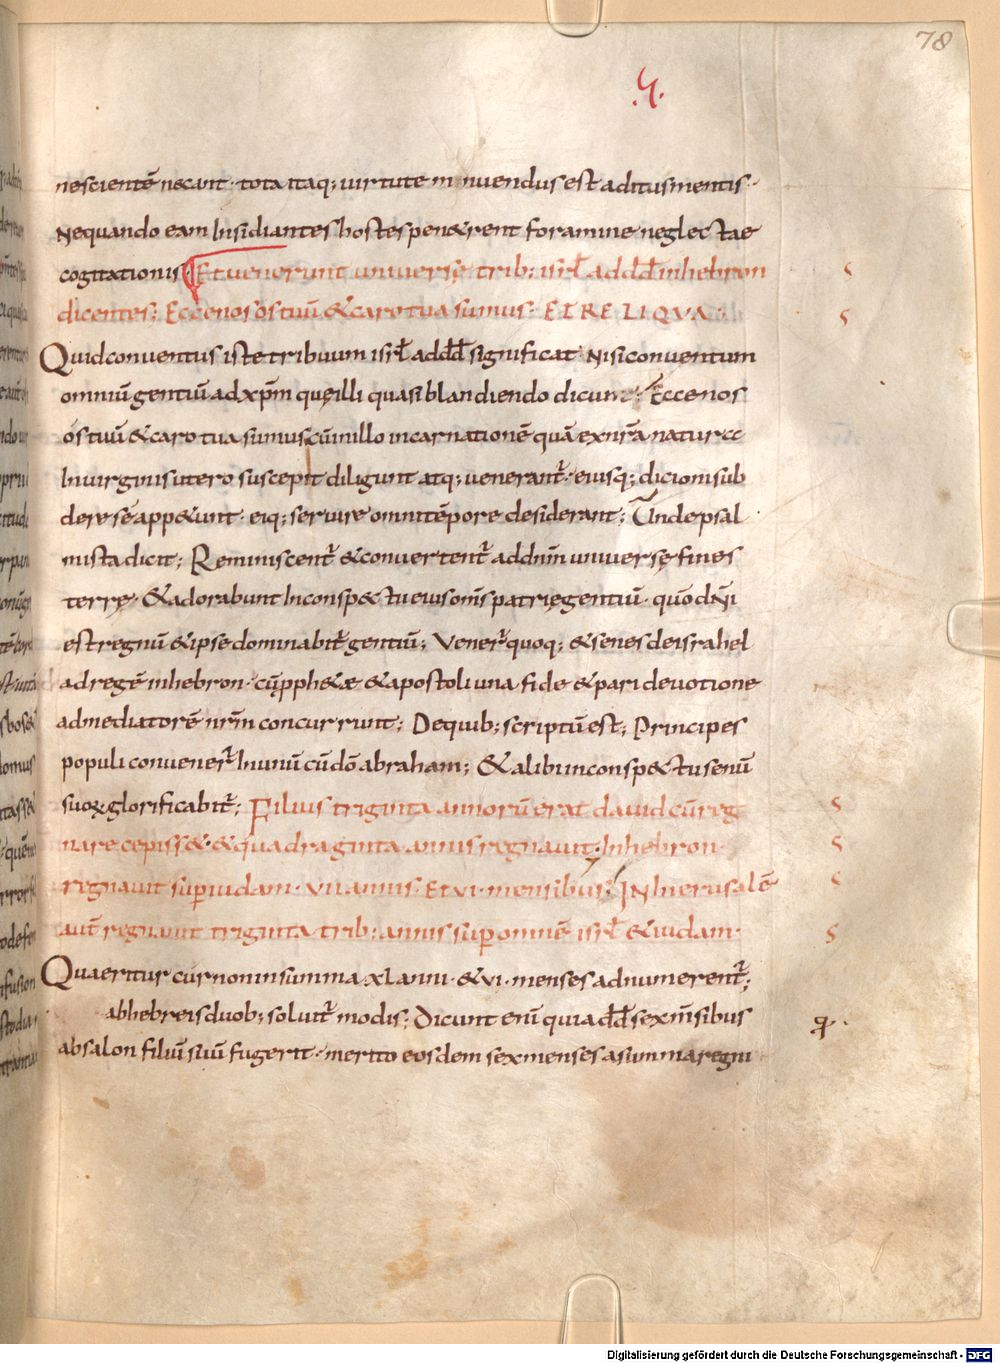 78
.5.
nescientē necant · tota itaq; virtute munuendus est aditus mentis ·
Nequando eam Insidiantes hostes penetrent foramine neglectae
cogitationis Et uenerunt universę trib; isrł ad dđđ inhebron
dicentes; Ecce nos os tuū & caro tua sumus · ET RELIQVA ·
Quid conventus iste tribuum isrł ad dđđ significat · Nisi conventum
omniū gentiū ad xp̄m quę illi quasi blandiendo dicunt · Ecce nos
os tuū & caro tua sumus cū in illo incarnationē quā ex nr̄a natura
In virginis utero suscepit diligunt atq; venerant̄ · eiusq; dicioni sub
dere se appetunt · eiq; servire omni tēpore desiderant; Unde psal
mista dicit; Reminiscent̄ & convertent̄ ad dn̄m universę fines
terrę · & adorabunt In conspectu eius om̄s patrię gentiū · quō dn̄i
est regnū & ipse dominabit̄ gentiū; Vener̄ quoq; & senes de israhel
ad regē inhebron · cū pph&ae & apostoli una fide & pari devotione
ad mediatorē nr̄m concurrunt; De quib; scriptū est; Principes
populi convener̄ In unū cū dō abraham; & alibi in conspectu senū
suoꝝ glorificabit̄; Filius triginta annorū erat david cū reg
nare cepiss& · & quadraginta annis regnavit · In hebron ·
regnavit sup iudam · VII annis · Et VI · mensibus; IN hierusalē
aut̄ regnavit triginta trib; annis sup omnē isrł & iudam ·
Quaeritur cur non in summa xl anni · & vi · menses adnumerent̄;
ab hebreis duob; solvit̄ modis; Dicunt enī quia dđđ sex m̄sibus
absalon filiū suū fugerit · merito eosdem sex menses a summa regni
Digitalisierung gefördert durch die Deutsche Forschungsgemeinschaft - DFG